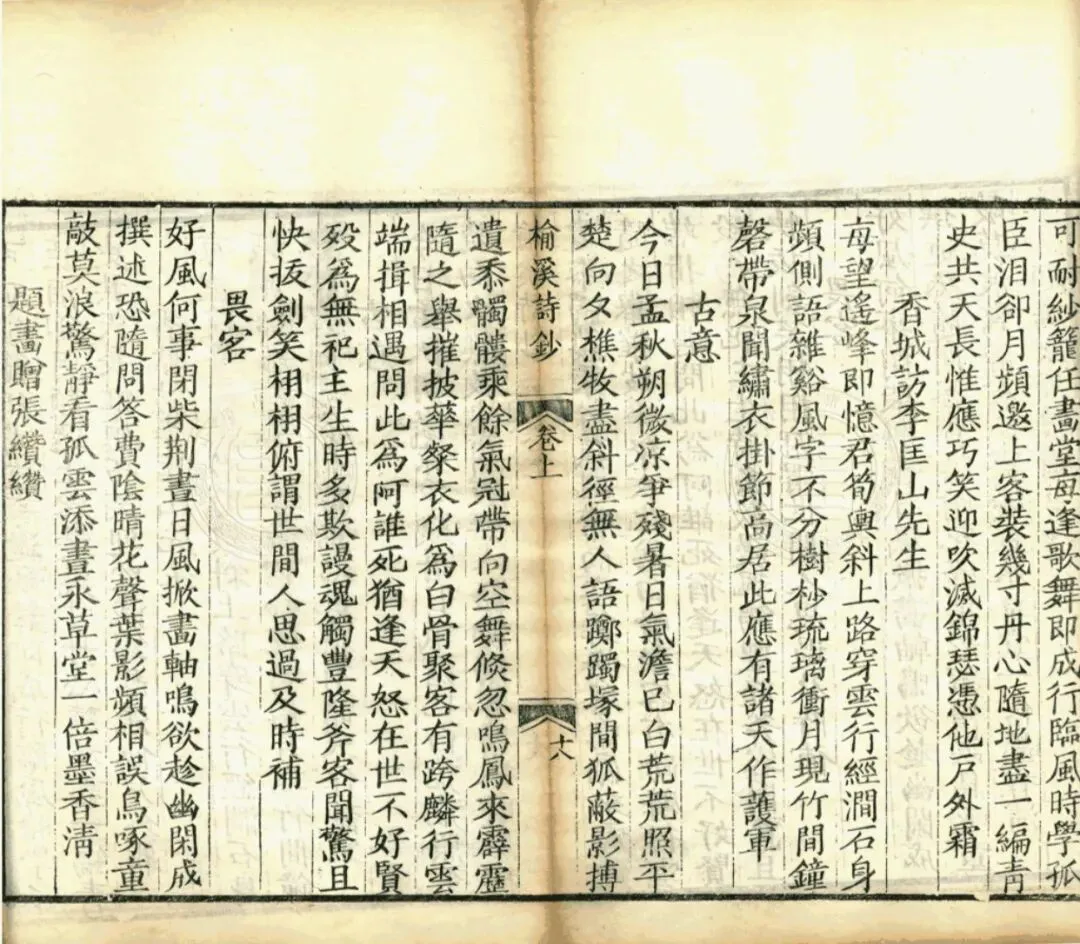 可耐紗籠任畫堂每逢歌舞即成行臨風時學孤
臣泪卻月頻邀上客裝幾寸丹心隨地盡一編靑
史共天長惟應巧笑迎吹滅錦瑟憑他戸外霜
香城訪李匡山先生
每望遥峰即憶君筍輿斜上路穿雲行經澗石身
頻側語雜谿風字不分樹杪琉璃衝月現竹間鐘
磬帶泉聞繡衣掛節高居此應有諸天作護軍
古意
今日孟秋朔微凉爭殘暑日氣澹已白荒荒照平
楚向夕樵牧盡斜徑無人語躑躅塚間狐蔽影搏
榆溪詩鈔
卷上
十八
遺黍髑髏乘餘氣冠帶向空舞倏忽鳴鳳來霹靂
隨之舉摧披華粲衣化爲白骨聚客有跨麟行雲
端揖相遇問此爲阿誰死猶逢天怒在世不好賢
殁爲無祀主生時多欺謾魂觸豐隆斧客聞驚且
快拔劍笑栩栩俯謂世間人思過及時補
畏客
好風何事閉柴荆晝日風掀畫軸鳴欲趁幽閑成
撰述恐隨問答費陰晴花聲葉影頻相誤鳥啄童
敲莫浪驚靜看孤雲添晝永草堂一倍墨香淸
題畫贈張纘纘